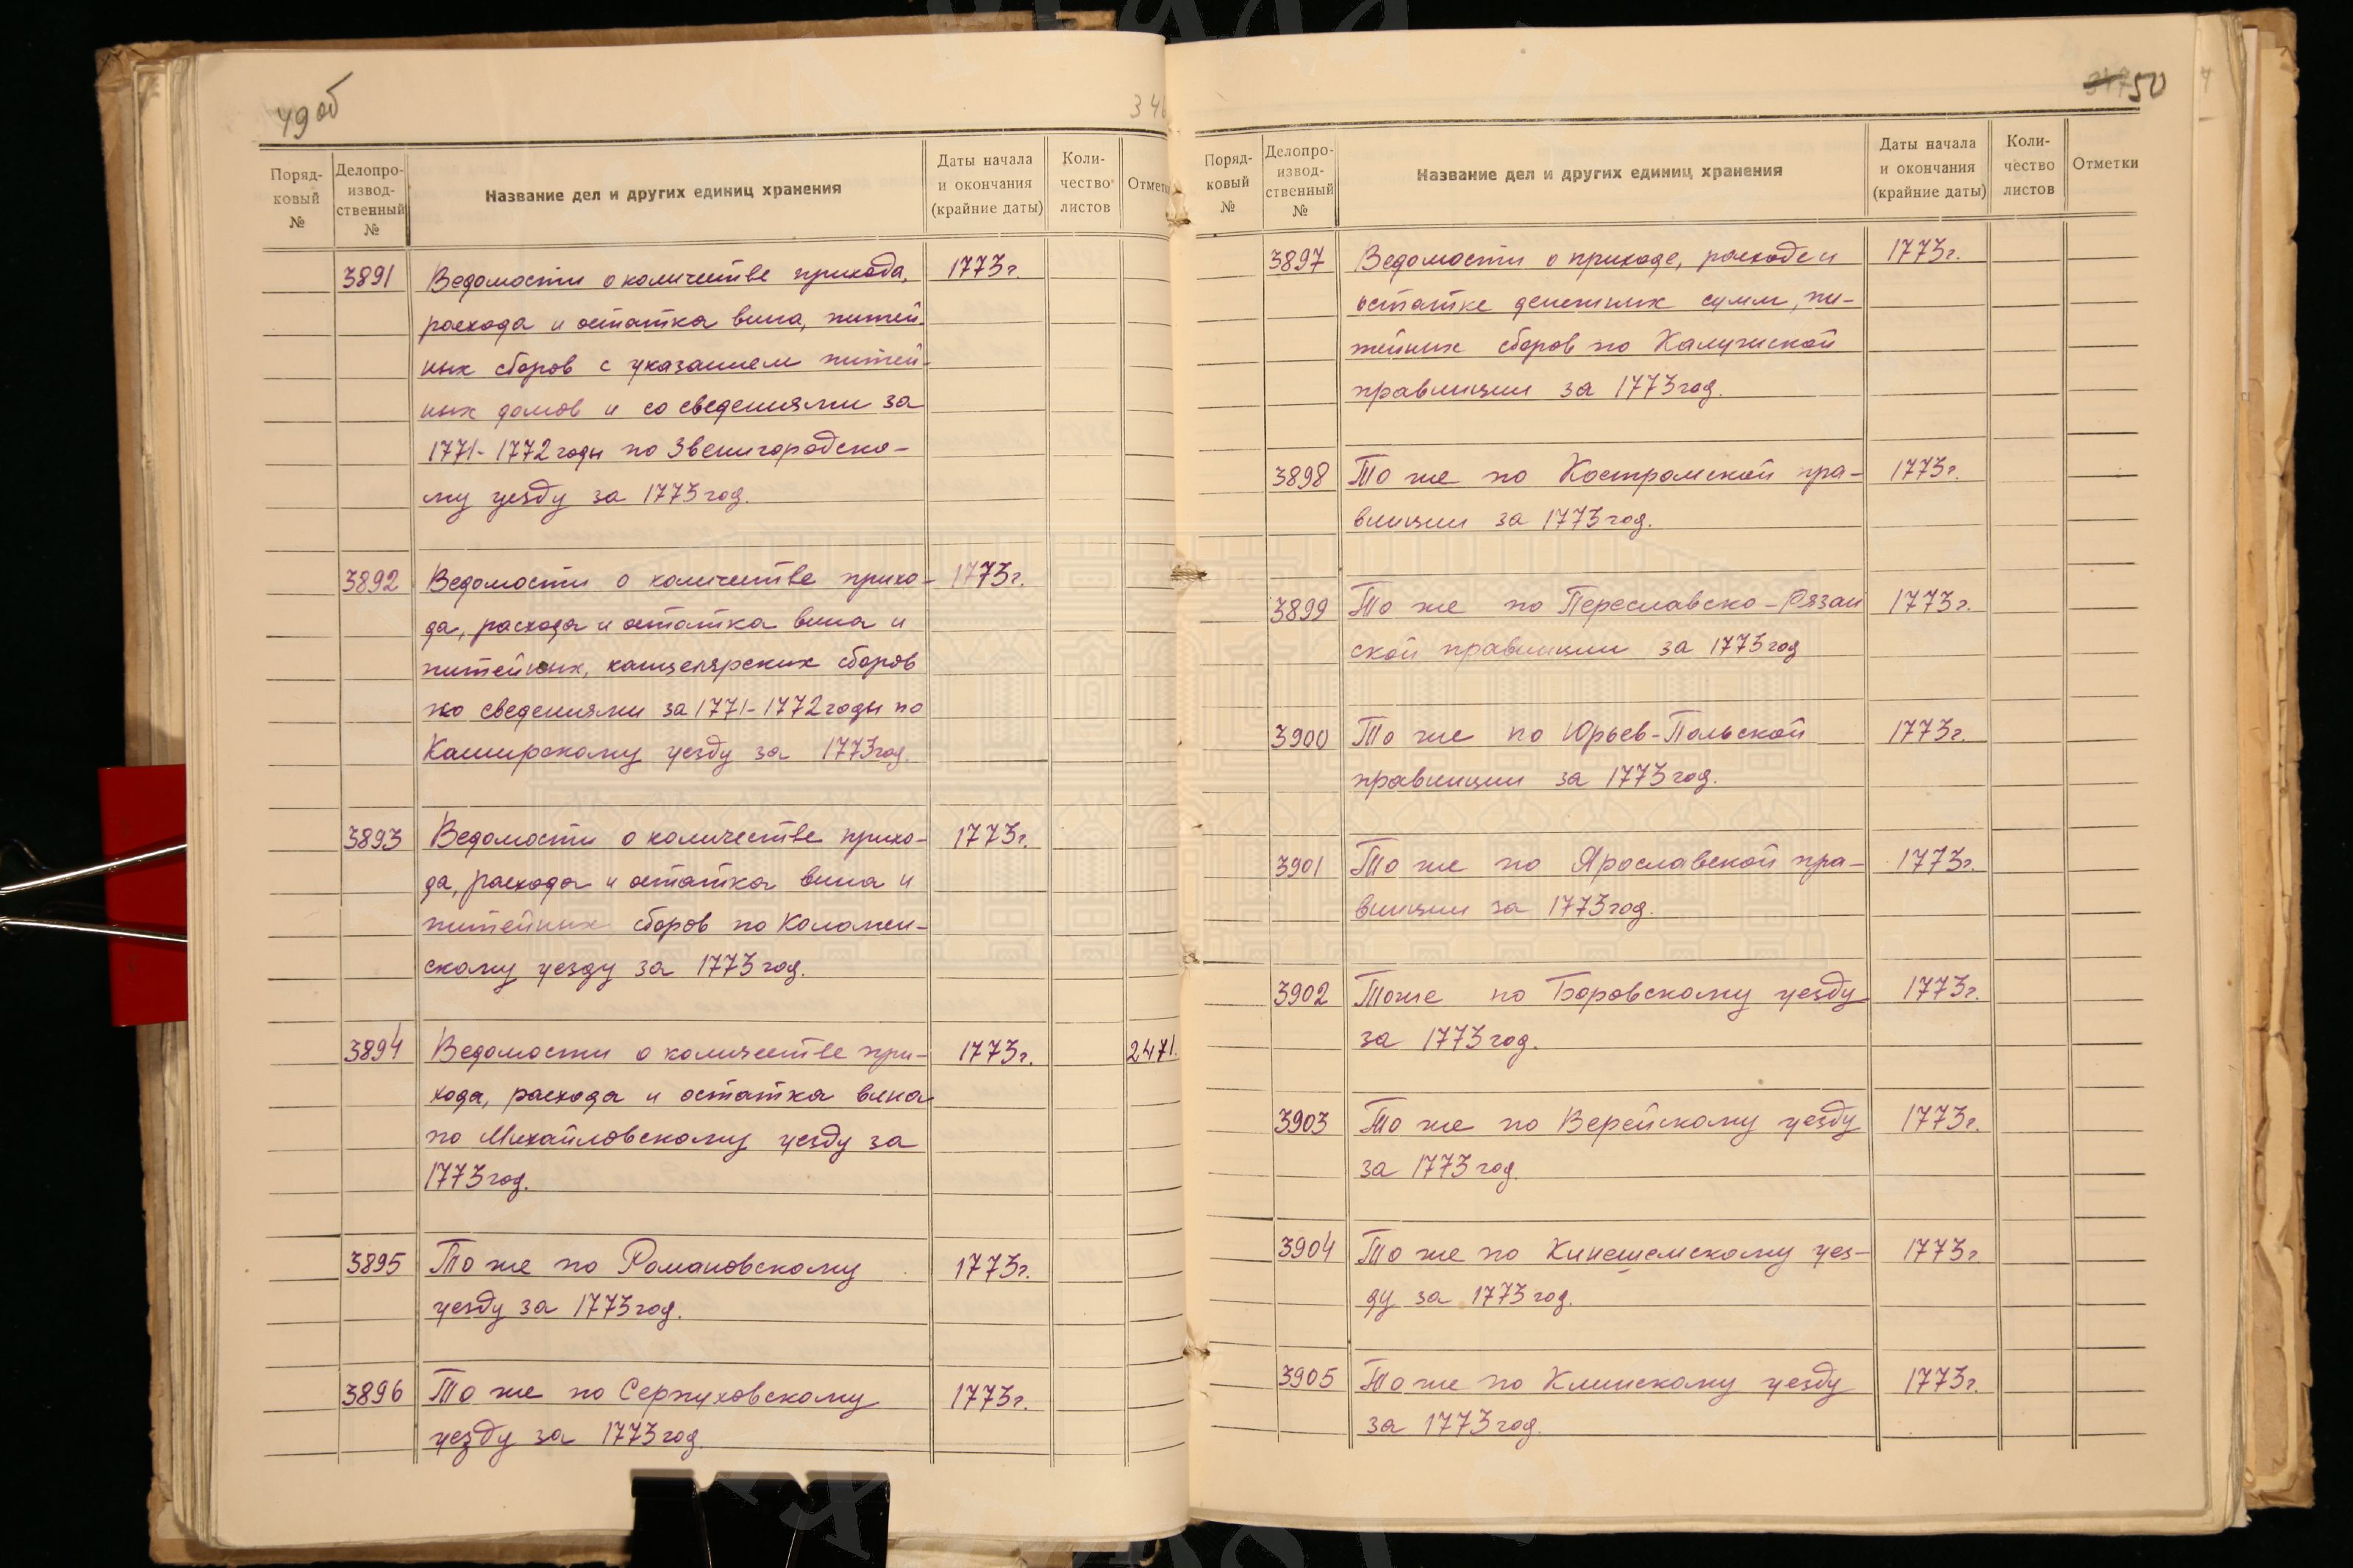 49 об
Поряд-
ковый
№
Делопро-
извод-
ственный
№
Название дел и других единиц хранения
Даты начала
и окончания
(крайние даты)
Коли-
чество
листов
3891 Ведомости о количестве прихода, 1773 г.
расхода и остатка вина, питей-
ных сборов с указанием питей-
ных домов и со сведениями за
1771-1772 годы по Звенигородско-
му уезду за 1773 год.
3892 Ведомости о количестве прихо- 1773 г.
да, расхода и остатка вина и
питейных, канцелярских сборов
со сведениями за 1771-1772 годы по
Каширскому уезду за 1773 год.
3893 Ведомости о количестве прихо- 1773 г.
да, расхода и остатка вина и
питейных сборов по Коломен-
скому уезду за 1773 год.
3894 Ведомости о количестве при- 1773 г. 2471.
хода, расхода и остатка вина
по Михайловскому уезду за
1773 год.
3895 То же по Романовскому 1773 г.
уезду за 1773 год.
3896 То же по Серпуховскому 1773 г.
уезду за 1773 год.
50
Поряд-
ковый
№
Делопро-
извод-
ственный
№
Название дел и других единиц хранения
Даты начала
и окончания
(крайние даты)
Коли-
чество
листов
Отметки
3897 Ведомости о приходе, расходе и 1773 г.
остатке денежных сумм, пи-
тейных сборов по Калужской
правинции за 1773 год.
3898 То же по Костромской пра- 1773 г.
винции за 1773 год.
3899 То же по Переславско-Рязан 1773 г.
ской правинции за 1773 год
3900 То же по Юрьев-Польской 1773 г.
правинции за 1773 год.
3901 То же по Ярославской пра- 1773 г.
винции за 1773 год.
3902 Тоже по Боровскому уезду 1773 г.
за 1773 год.
3903 То же по Верейскому уезду 1773 г.
за 1773 год.
3904 То же по Кинешемскому уез- 1773 г.
ду за 1773 год.
3905 То же по Клинскому уезду 1773 г.
за 1773 год.